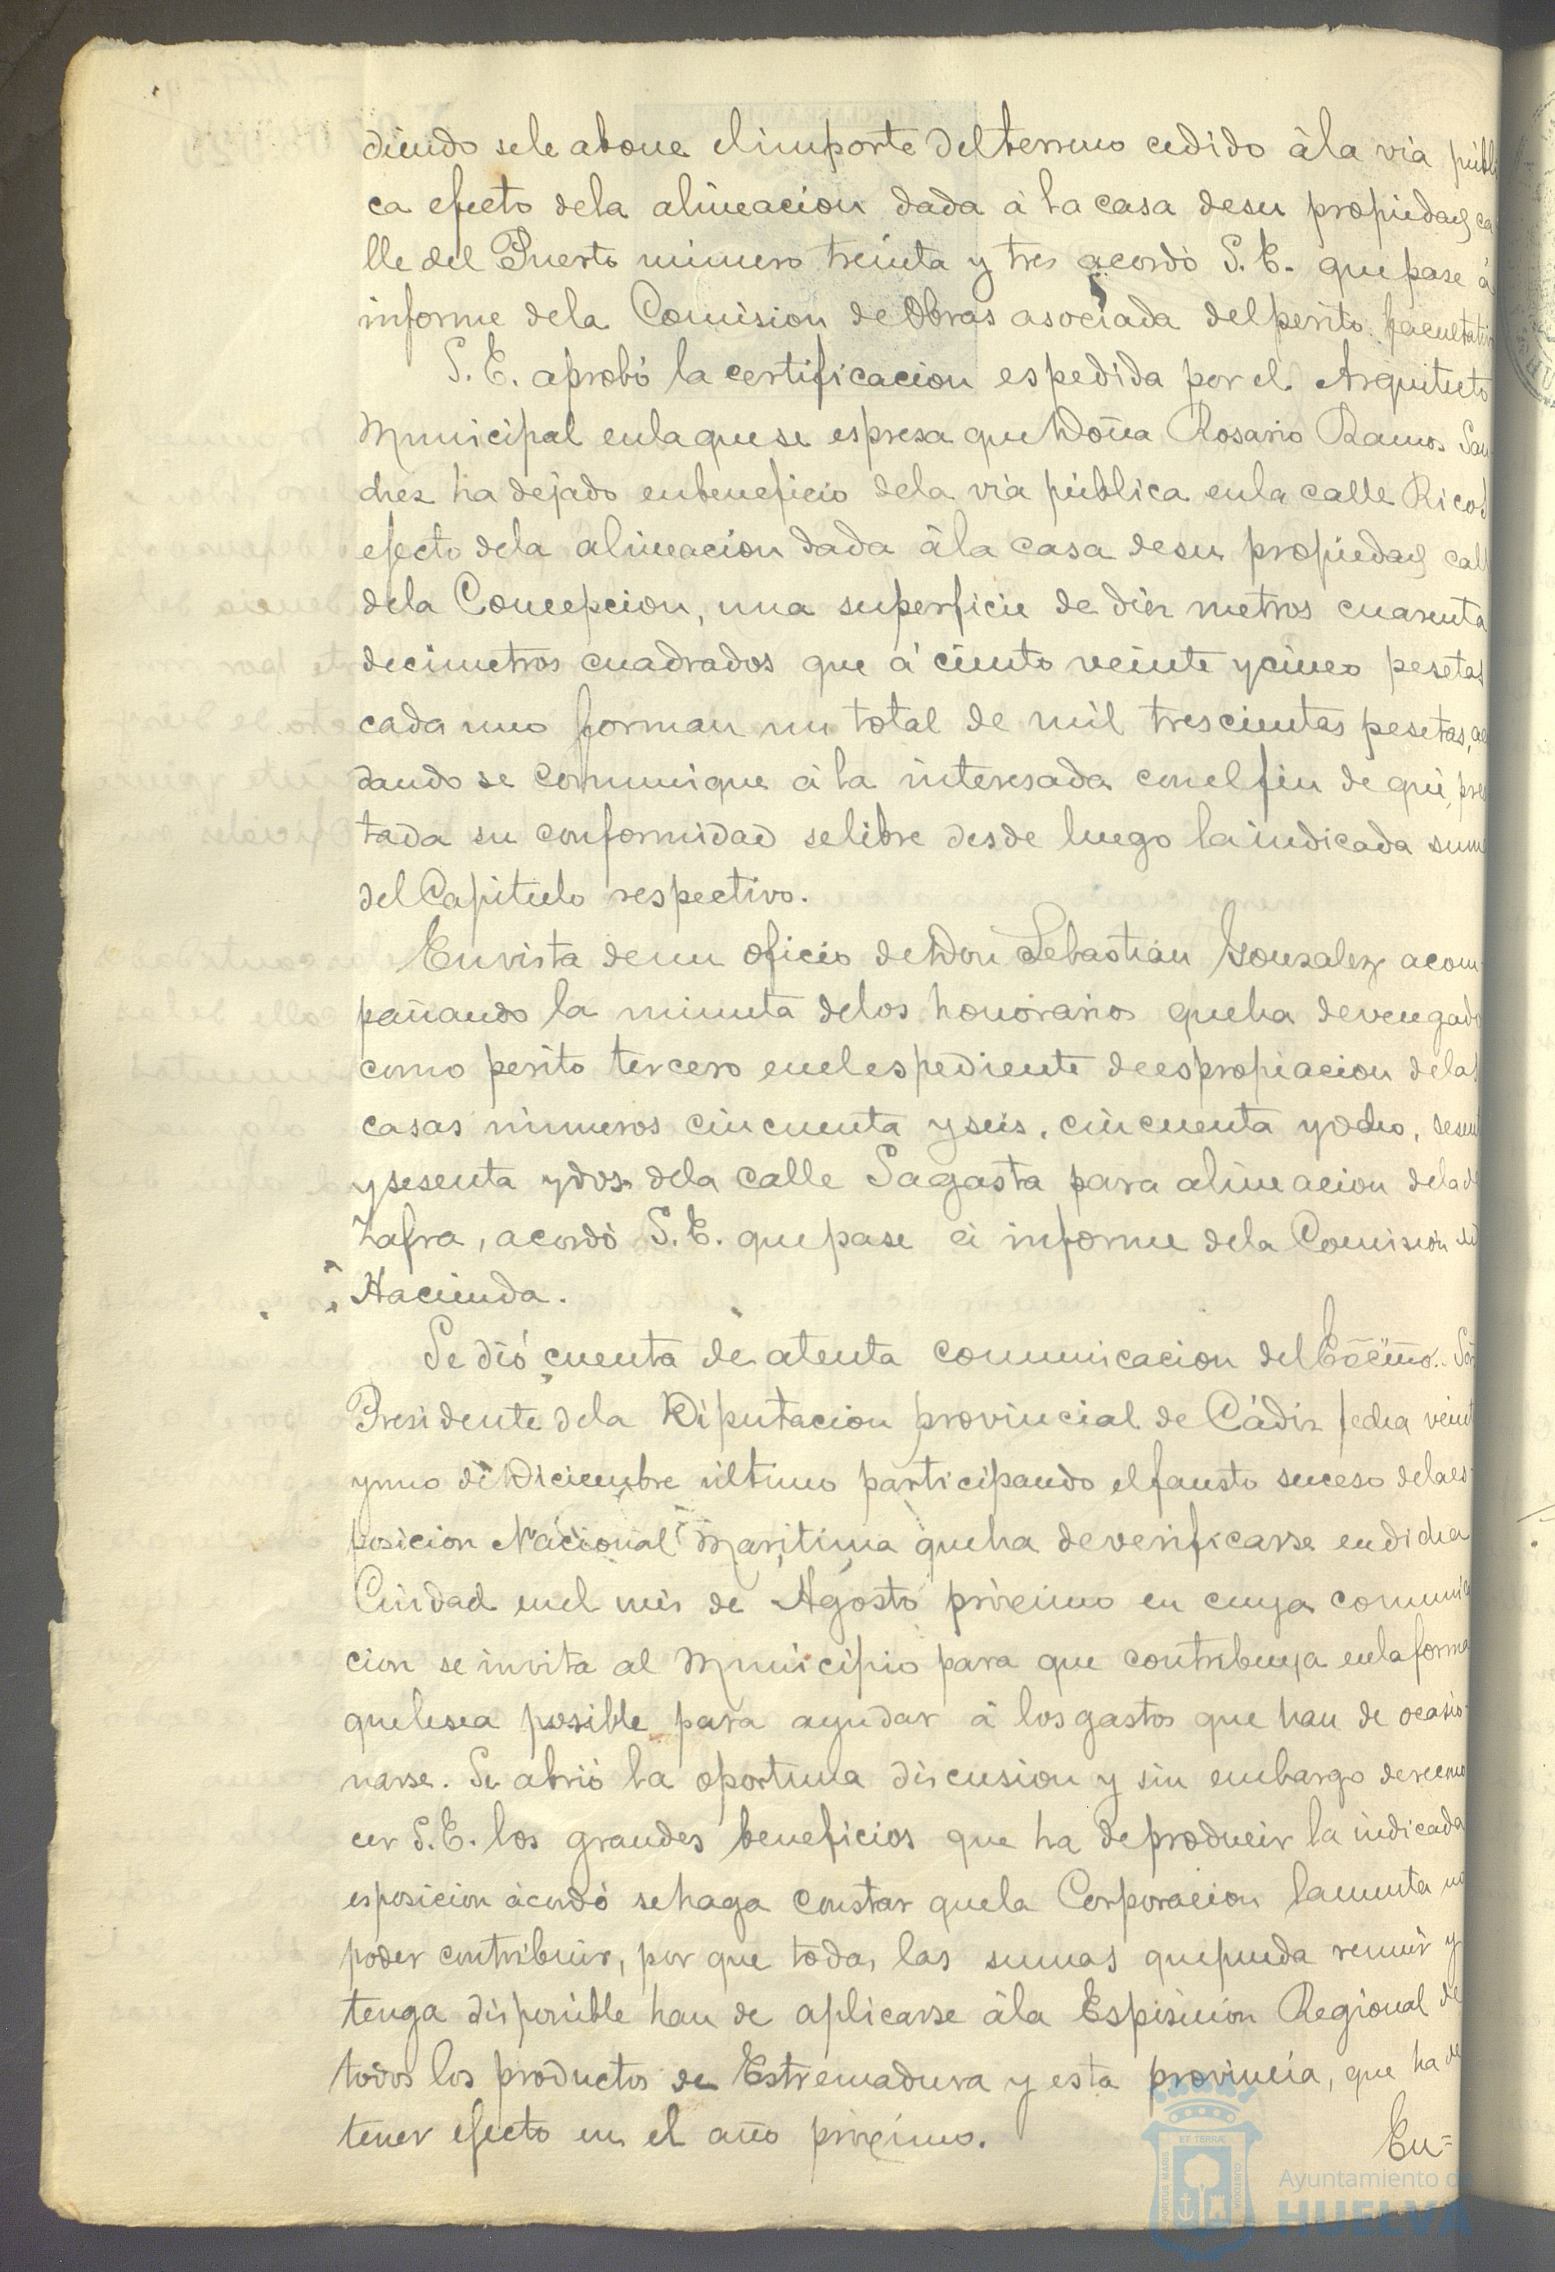 diendo se le abone el importe del terreno cedido á la via públi
ca efecto de la alineacion dada á la casa de su propiedad ca
lle del Puerto número treinta y tres acordó S. E. que pase á
informe de la Comision de Obras asociada del perito facultativo
S. E. aprobó la certificacion espedida por el Arquitecto
Municipal en la que se espresa que Doña Rosario Ramos San
chez ha dejado en beneficio de la via pública en la calle Ricos
efecto de la alineacion dada á la casa de su propiedad call
de la Concepcion, una superficie de diez metros cuarenta
decimetros cuadrados que á ciento veinte y cinco pesetas
cada uno forman un total de mil trescientas pesetas, ac
dando se comunique á la interesada con el fin de que, pres
tada su conformidad se libre desde luego la indicada suma
del Capitulo respectivo.
En vista de un oficio de Don Sebastián Gonzalez acom-
pañando la minuta de los honorarios que ha devengado
como perito tercero en el espediente de espropiacion de las
casas números cincuenta y seis, cincuenta y ocho, sesent
y sesenta y dos de la calle Sagasta para alineacion de la de
Zafra, acordó S. E. que pase á informe de la Comision de
Hacienda.
Se dió cuenta de atenta comunicacion del Excmo. Sor
Presidente de la Diputacion provincial de Cádiz fecha veint
y uno de Diciembre último participando el fausto suceso de la es-
posicion Nacional Maritima que ha de verificarse en dicha
Ciudad en el mes de Agosto próximo en cuya comunica
cion se invita al Municipio para que contribuya en la forma
que le sea posible para ayudar á los gastos que han de ocasio-
narse. Se abrió la oportuna discusion y sin embargo de recono
cer S. E. los grandes beneficios que ha de producir la indicada
esposicion acordó se haga constar que la Corporacion lamenta no
poder contribuir, por que todas las sumas que pueda reunir y
tenga disponible han de aplicarse á la Esposicion Regional de
todos los productos de Estremadura y esta provincia, que ha de
tener efecto en el año próximo.
En=
Ayuntamiento de
HUELVA